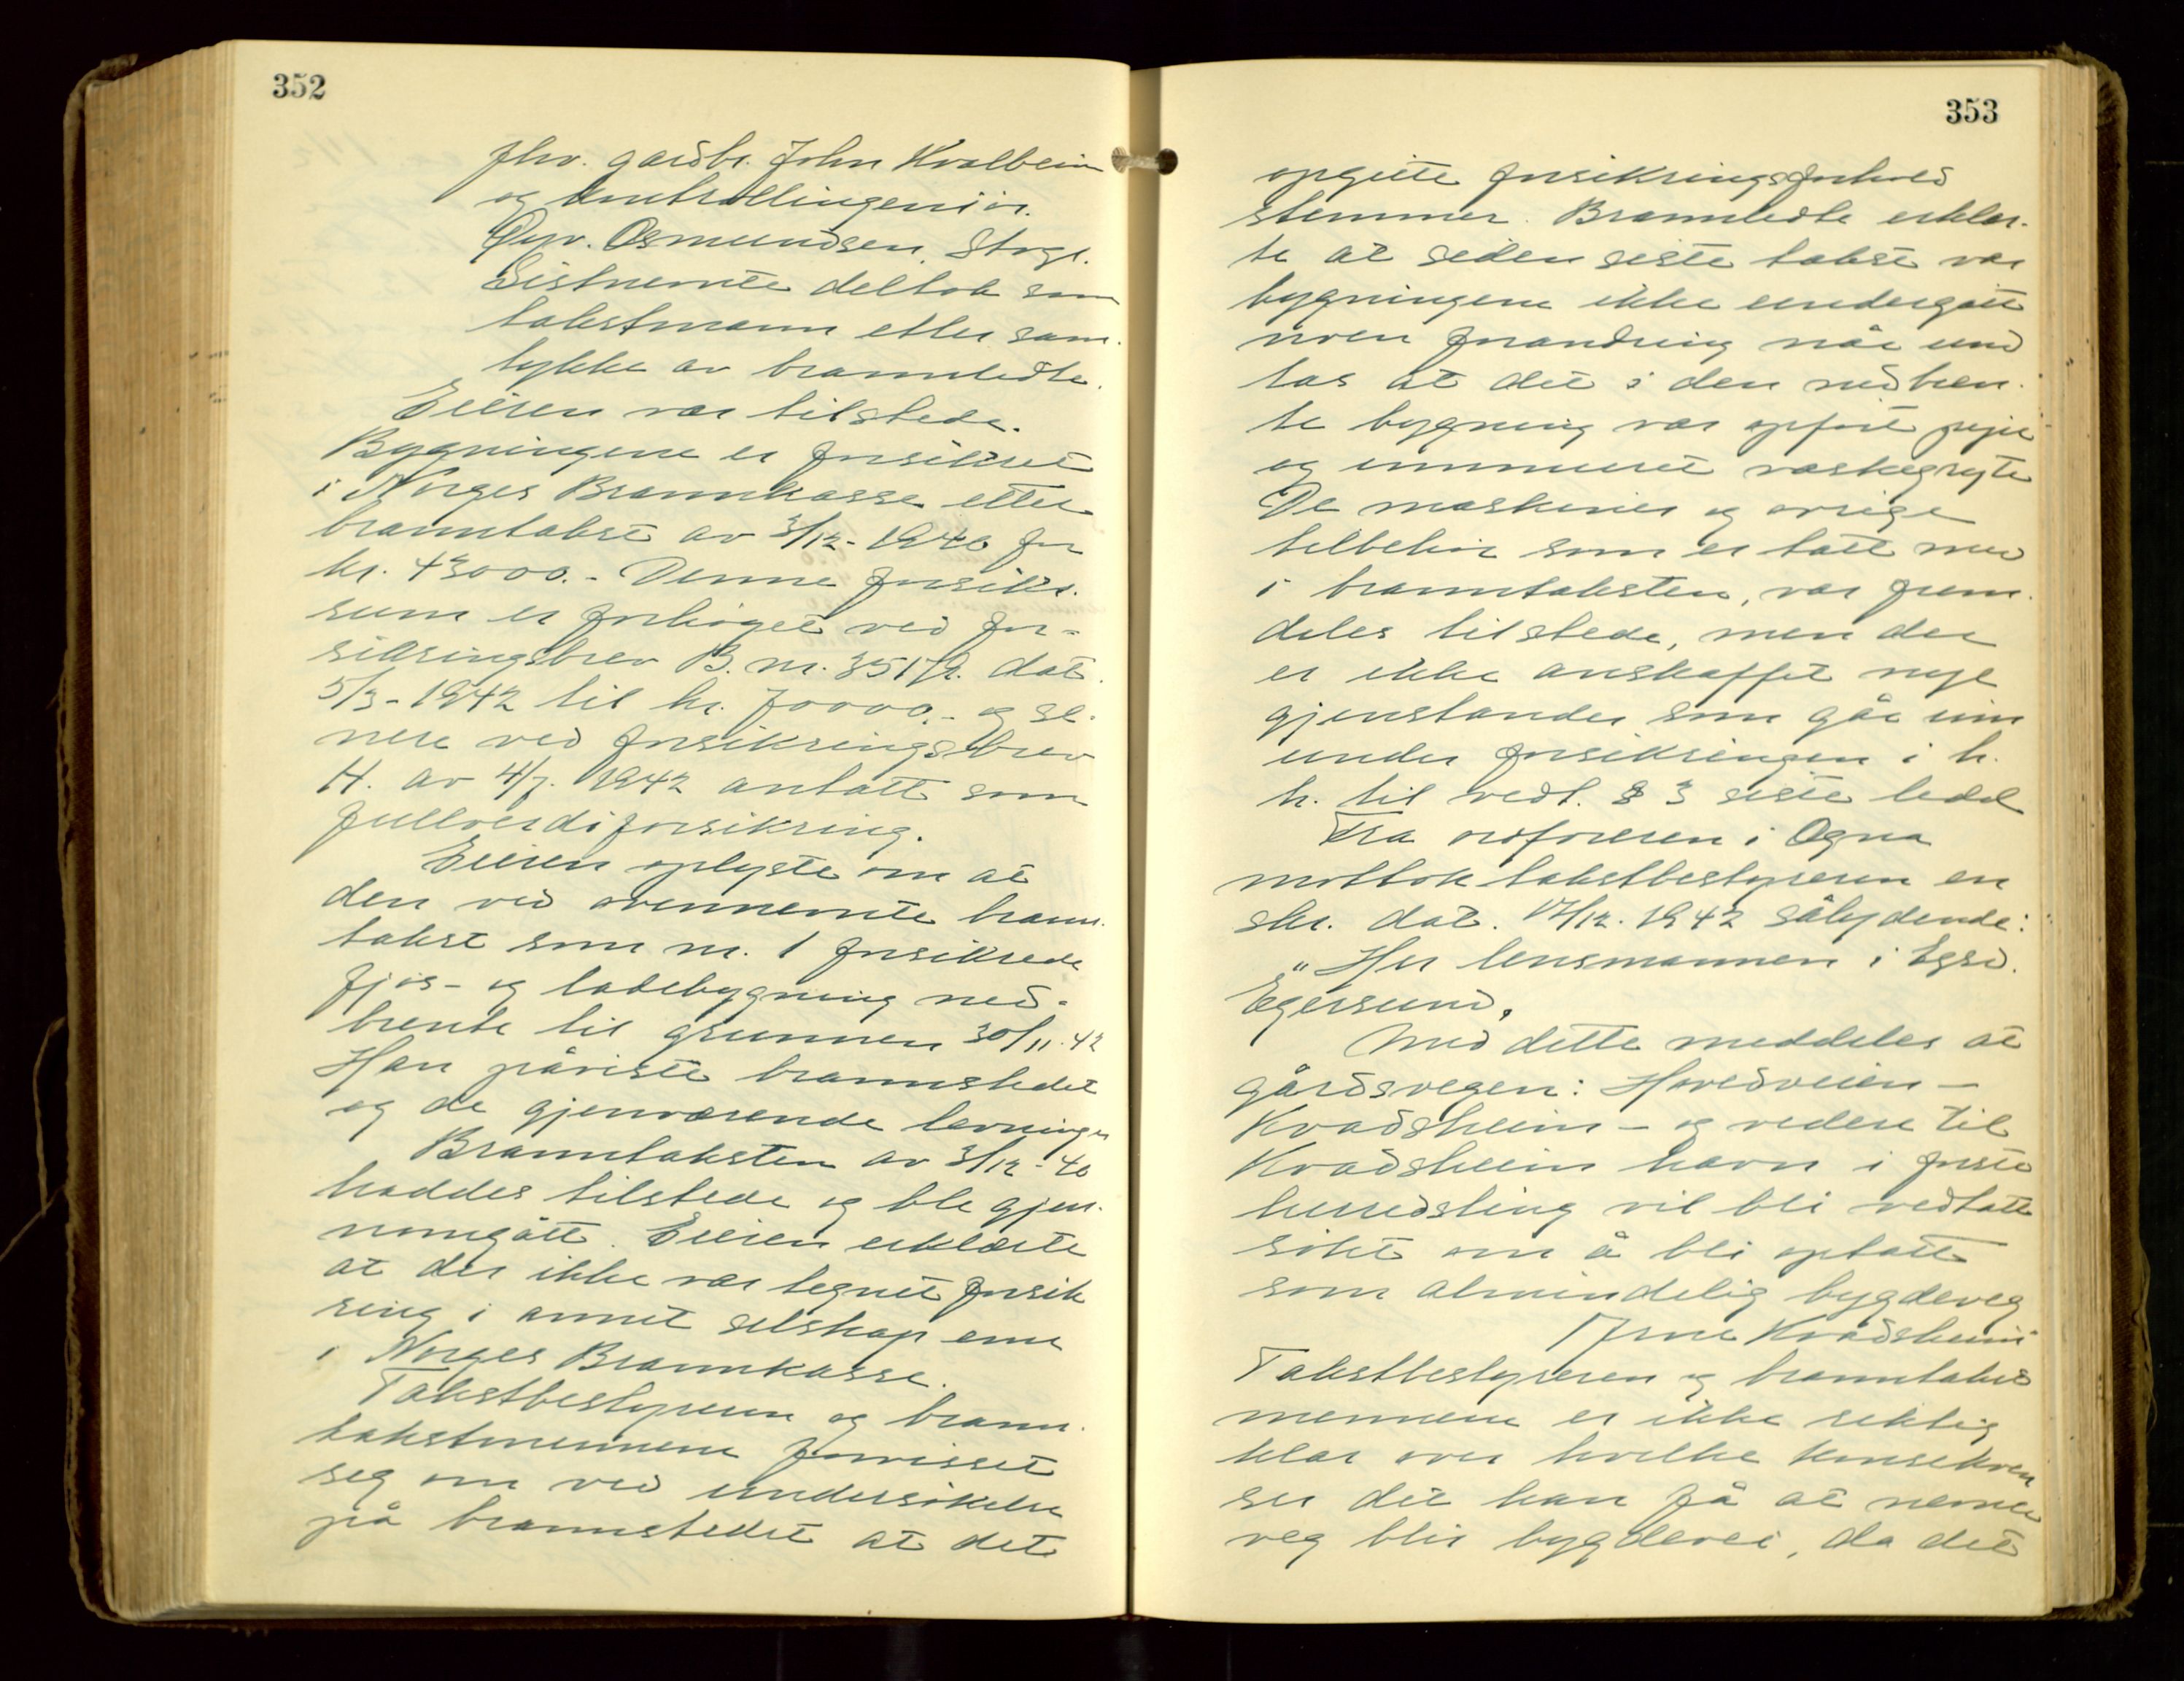 352
fhv. gardbr. John Kvalbein
og kontrollingeniör.
Öyv. Osmundsen, Stvgr.
Sistnemte deltok som
takstmann etter sam-
tykke av brannledte.
Eieren var tilstede.
Bygningene er forsikret
i Norges Brannkasse etter
branntakst av 3/12-1940 for
kr. 43000.- Denne forsikr.
sum er forhöyet ved for-
sikringsbrev B. nr. 35172. dat.
5/3-1942 til kr. 70000.- og se-
nere ved forsikringsbrev
H. av 4/7. 1942 antatt som
fullverdiforsikring.
Eieren oplyste om at
den ved ovennemte brann-
takst som nr. 1 forsikrede
fjös- og ladebygning ned-
brente til grunnen 30/11.42
Han påviste brannstedet
og de gjenværende levninger
Branntaksten av 3/12-40
haddes tilstede og ble gjen-
nomgått. Eieren erklærte
at der ikke var tegnet forsik
ring i annet selskap enn
i Norges Brannkasse.
Takstbestyreren og brann-
takstmennene forvisset
seg om ved undersökelse
på brannstedet at det
353
opgitte forsikringsforhold
stemmer. Brannledte erklær-
te at siden siste takst var
bygningene ikke undergått
noen forandring når und
tas at det i den nedbren-
te bygning var opfört pipe
og innmuret vaskegryte
De maskiner og övrige
tilbehör som er tatt med
i branntaksten, var frem-
deles tilstede, men der
er ikke anskaffet nye
gjenstander som går inn
under forsikringen i h.
h. til vedt. § 3 siste ledd
Fra ordföreren i Ogna
mottok takstbestyreren en
skr. dat. 17/12. 1942 sålydende:
"Her lensmannen i Egsd.
Egersund,
Med dette meddeles at
gårdsvegen: Hovedveien -
Kvadsheim - og videre til
Kvadsheim havn i förste
herredsting vil bli vedtatt
sökt om å bli optatt
som almindelig bygdeveg
Kvadsheim
Takstbestyreren og branntakst
mennene er ikke riktig
klar over hvilke konsekven
ser det kan få at nemnde
veg blir bygdevei, da det